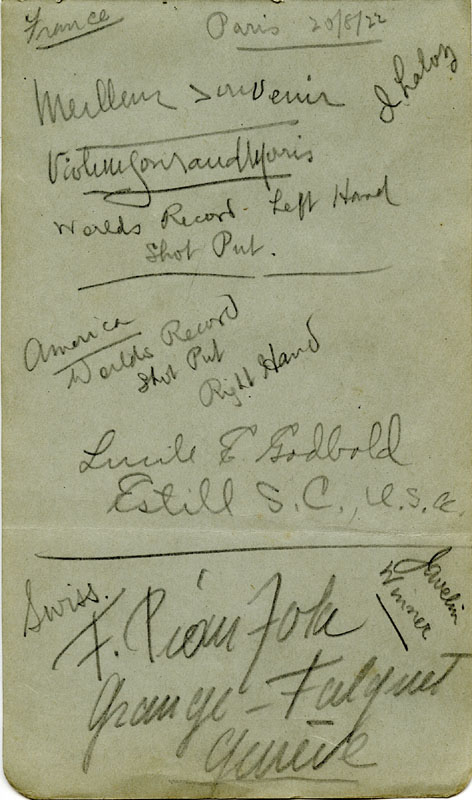 France
Paris 20/8/22
Meilleur Souvenir
Violette Gouraud Morris
Worlds Record Left Hand
Shot Put.
America
Worlds Record
Shot Put
Right Hand
Lucile E Godbold
Estill S.C., U.S.A.
Swiss.
Javelin
Winner
F. Pianzola
Grange-Falquet
Genève